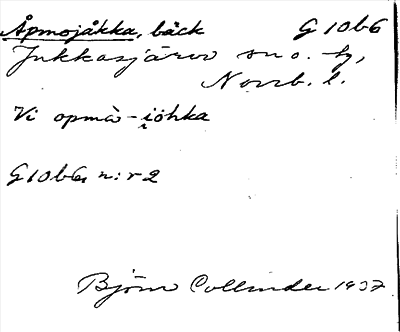 Åpmojåkka, bäck G 10b6
Jukkasjärvi sn o. tg,
Norrb. l.
Vi opmà-i̯öhka
G10b6 n:r 2
Björn Collinder 1937